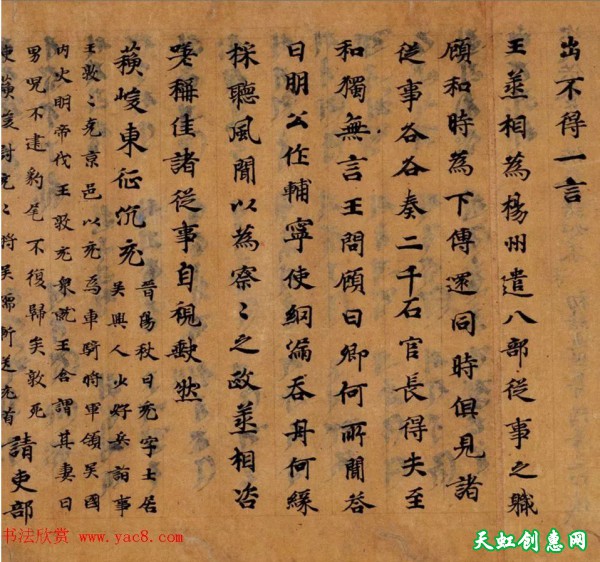 出不得一言
王丞相為楊州遣八部從事之職
顧和時為下傳還同時俱見諸
從事各各奏二千石官長得失至
和獨無言王問顧曰卿何所聞荅
曰明公作輔寧使綱漏吞舟何緣
採聽風聞以為察〻之政丞相咨
嗟稱佳諸從事自視缺然
蘓峻東征沉充
晉陽秋曰充字士居
吳興人少好兵諂事
王敦〻克京邑以充為車騎將軍領吳國
内史明帝伐王敦充衆就王含謂其妻曰
男兒不建豹尾不復歸矣敦死
蘓峻討充〻將吳儒斬送充首
請吏部
书法欣赏 www.yac8.com
天虹创惠网